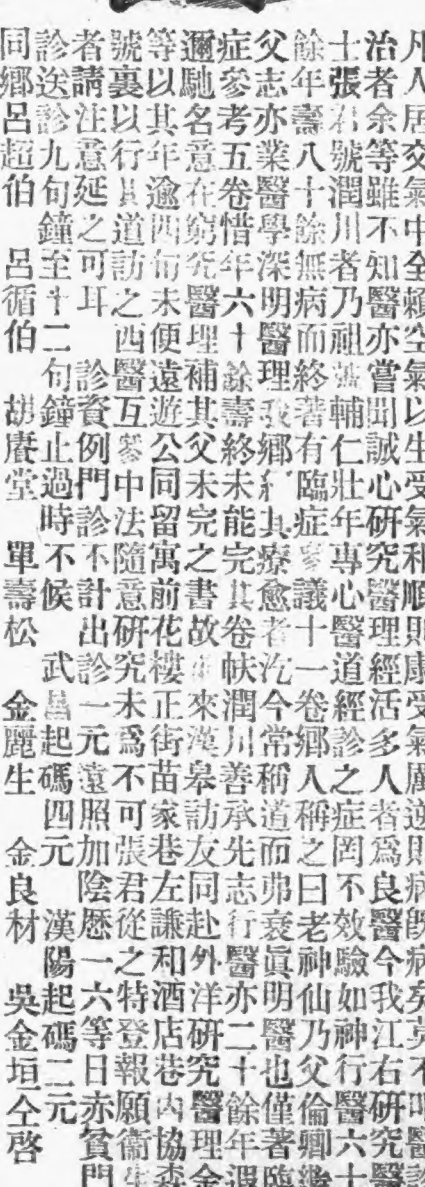 凡人居交氣中全賴空氣以生受氣和順則康受氣厲逆則病旣病矣莫不叩醫診
治者余等雖不知醫亦嘗聞誠心硏究醫理經活多人者爲良醫今我江右硏究醫
士張君號潤川者乃祖號輔仁壯年專心醫道經診之症罔不效驗如神行醫六十
餘年壽八十餘無病而終著有臨症議十一卷鄉人稱之曰老神仙乃父倫卿繼
父志亦業醫學深明醫理我鄉經其療愈者汔今常稱道而弗衰眞明醫也僅著臨
症參考五卷惜年六十餘壽終未能完其卷帙潤川善承先志行醫亦二十餘年遐
邇馳名意在窮究醫理補其父未完之書故來漢皋訪友同赴外洋硏究醫理余
等以其年逾四旬未便遠遊公同留寓前花樓正街苗家巷左謙和酒店巷內協森
號裏以行其道訪之西醫互參中法隨意硏究未爲不可張君從之特登報願衞生
者請注意延之可耳 診資例門診不計出診一元遠照加陰歷一六等日亦貧門
診送診九旬鐘至十二句鐘止過時不候 武昌起碼四元 漢陽起碼二元
同鄉呂超伯 呂循伯 胡賡堂 單壽松 金麗生 金良材 吳金垣仝啓